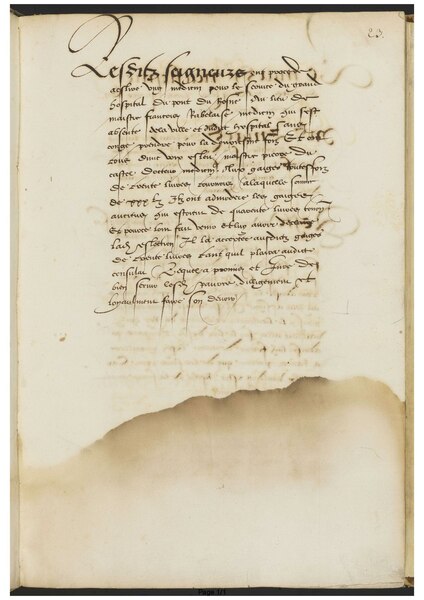 23
Lesditz seigneurs ont procede
a eslire ung medecin pour le service du grand
hospital du pont du Rosne Au lieu de
maistre francoys Rabelaise medecin qui sest
absente de la ville et dudit hospital sans
conge prendre pour la deuxiesme foys Et
tous dung veu esleu maistre pierre du
castel docteur medecin Aux gaiges toutesfoys
de trente livres tournois a laquelle somme
de xxx l. Ilz ont admodere les gaiges
qui estoient de quarente livres tourn
Et pource
lad eslection Il la accorde ausdits gaiges
de trente livres tant quil plaira audict
consulat Lequel a promis et jure de
bien servir lesd pauvres diligement et
loyaulment faire son devoir
Page 1/1